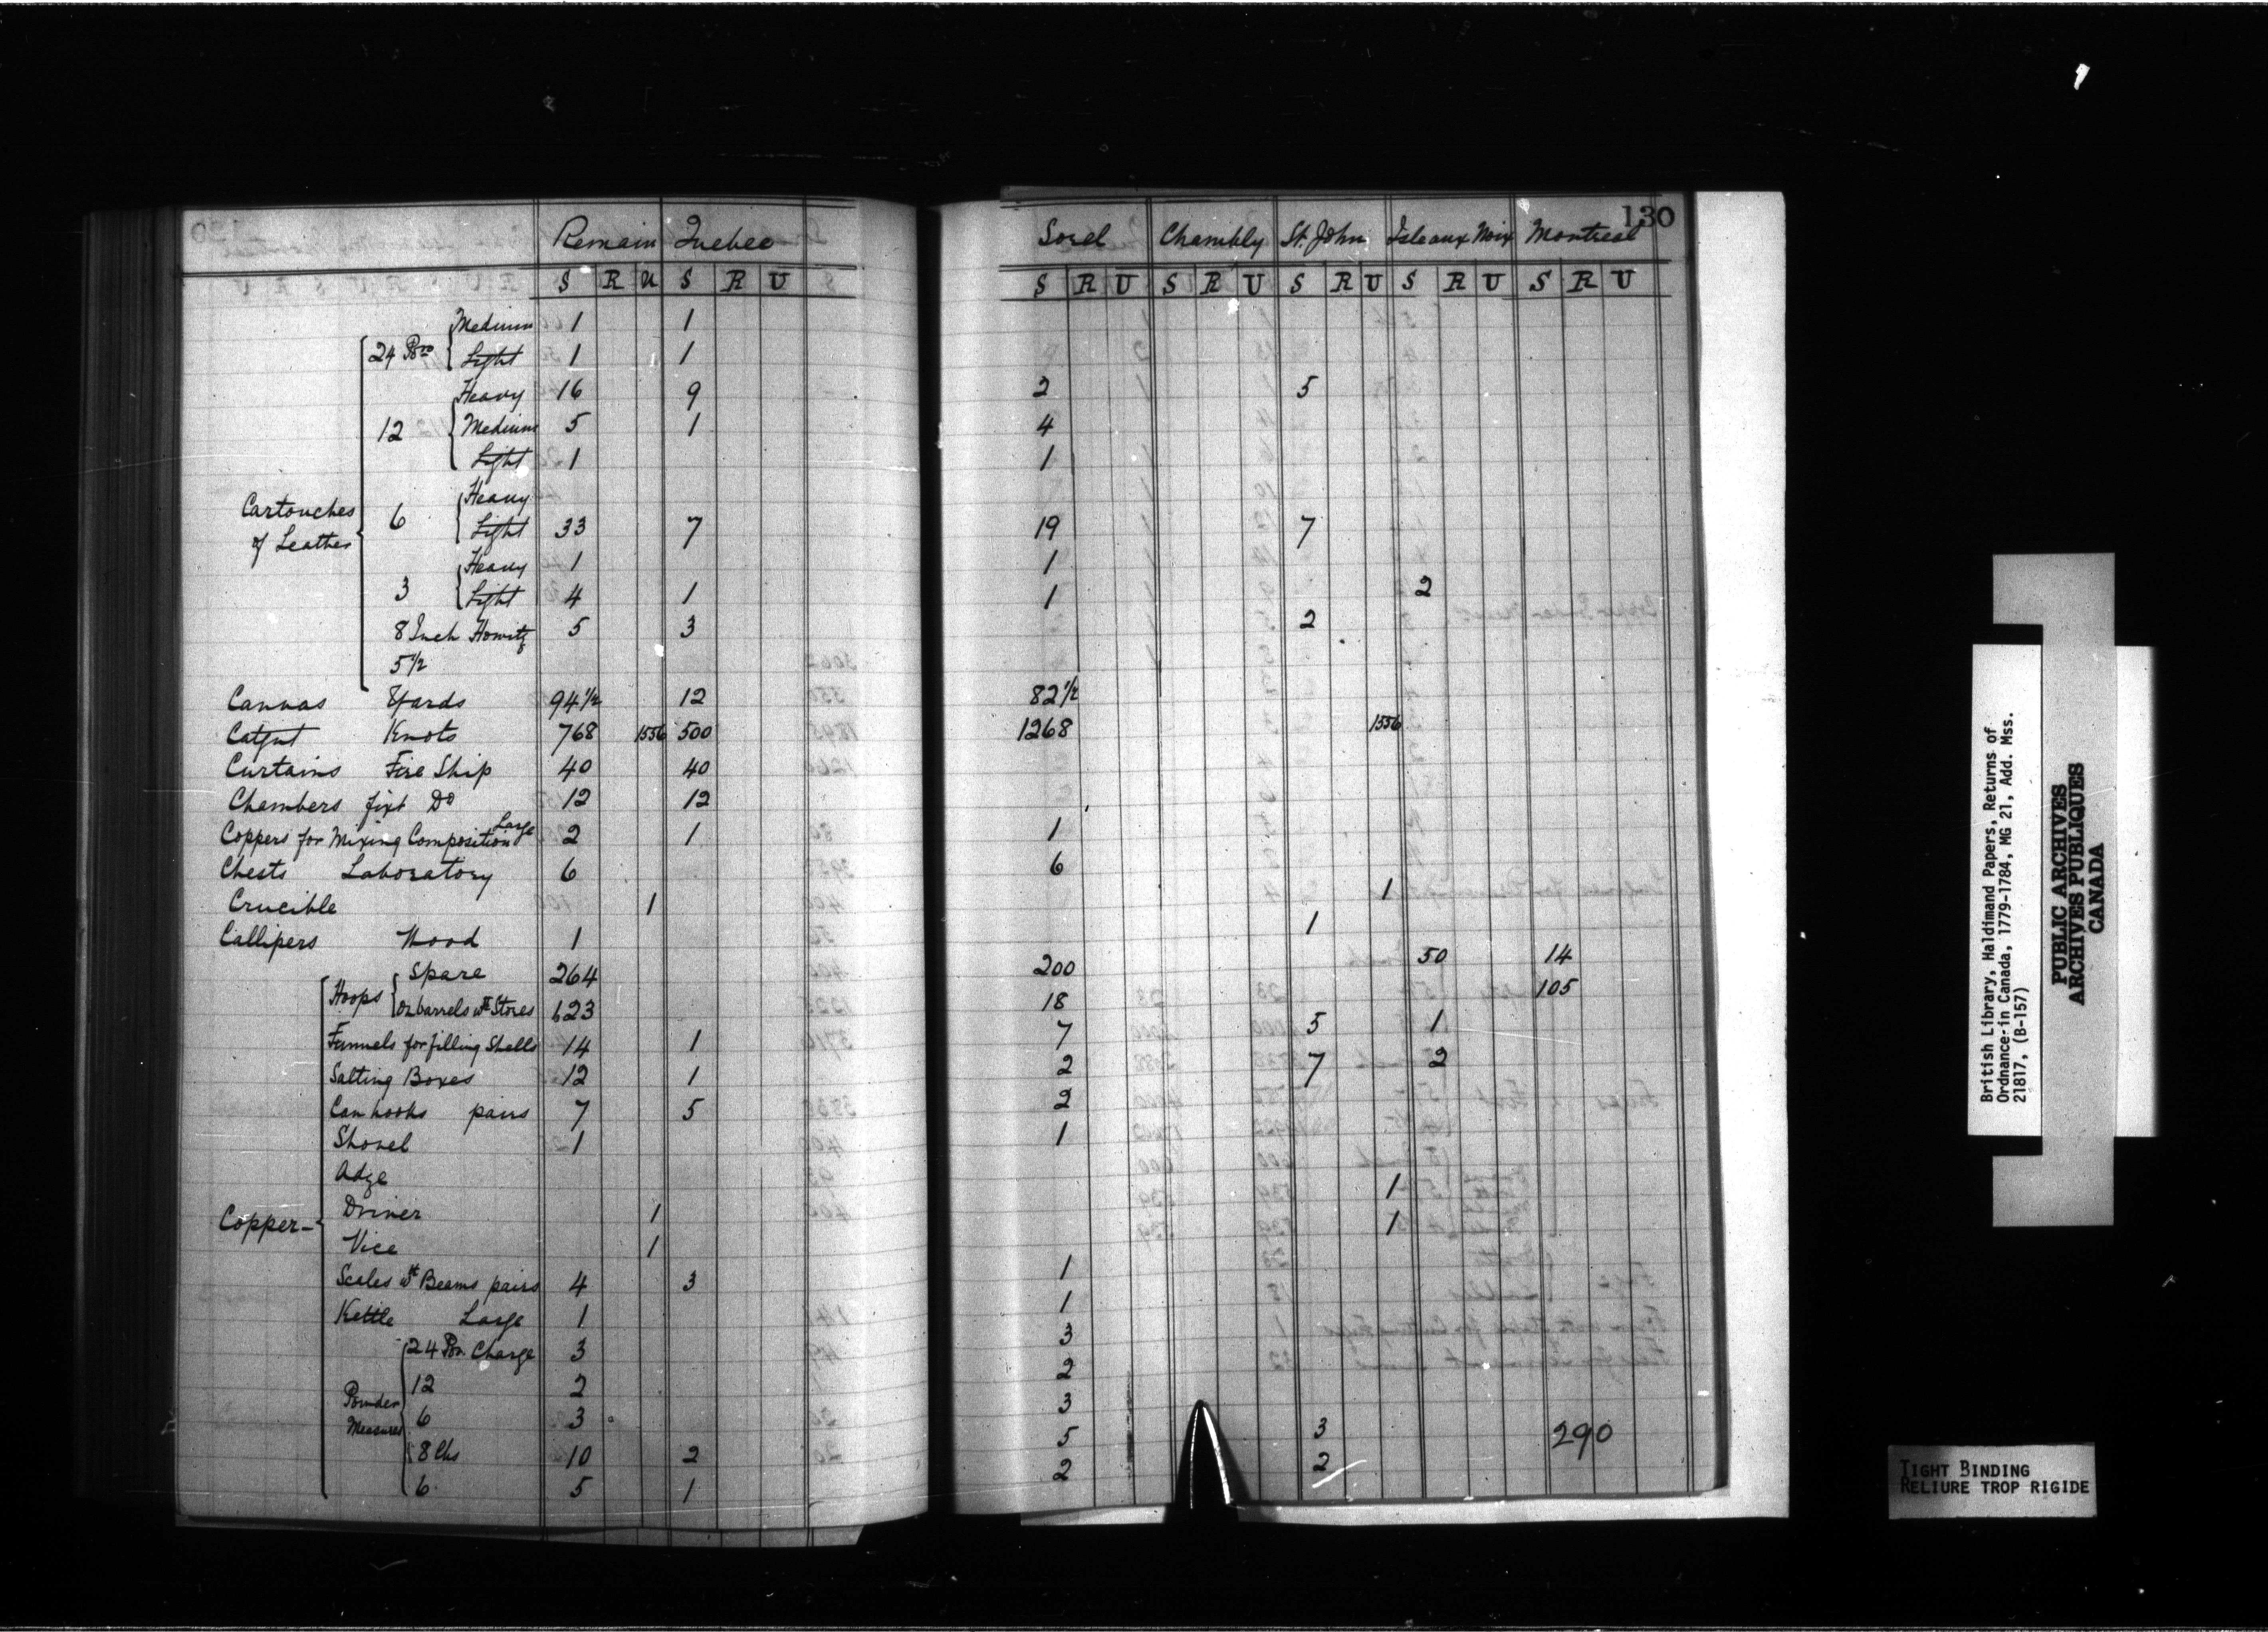 130
Remain Quebec Sorel Chambly St. John Isle aux Noix Montreal
S R U S R U S R U S R U S R U S R U S R U
Cartouches of Leather
24 Pdr Medium 1 1
Light 1 1
Heavy 16 9 2 5
12 Medium 5 1 4
Light 1 1
Heavy
6 Light 33 7 19 7
Heavy 1 1
3 Light 4 1 1 2
8 Inch Howitz 5 3 2
5 1/2
Canvas Yards 94 1/2 12 82 1/2
Catgut Knots 768 1556 500 1268 1556
Curtains Fire Ship 40 40
Chambers fixt Do 12 12
Coppers for Mixing Composition Large 2 1 1
Chests Laboratory 6 6
Crucible 1 1
Callipers Wood 1 1
Copper-
Hoops Spare 264 200 50 14
On barrels wt Stores 623 18 105
Funnels for filling Shells 14 1 7 5 1
Salting Boxes 12 1 2 7 2
Canhooks pairs 7 5 2
Shovel 1 1
Adze
Driver 1 1
Vice 1 1
Scales wt Beams pairs 4 3 1
Kettle Large 1 1
Powder Measures
24 Pdr. Charge 3 3
12 2 2
6 3 3
8 lbs 10 2 5 3
6 5 1 2 2
290
British Library, Haldimand Papers, Returns of
Ordnance in Canada, 1779-1784, MG 21, Add. Mss.
21817, (B-157)
PUBLIC ARCHIVES
ARCHIVES PUBLIQUES
CANADA
TIGHT BINDING
RELIURE TROP RIGIDE